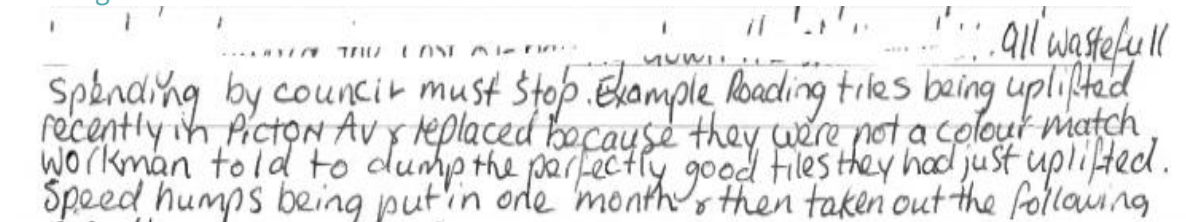 All wastefull
Spending by council must Stop. Example Roading tiles being uplifted
recently in PICTON AV & replaced because they were not a colour match.
Workman told to dump the perfectly good tiles they had just uplifted.
Speed humps being put in one month & then taken out the following